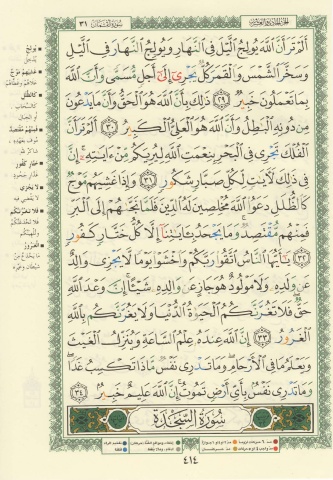 سُورَةُ لُقْمَان ٣١
أَلَمْ تَرَ أَنَّ ٱللَّهَ يُولِجُ ٱلَّيْلَ فِى ٱلنَّهَارِ وَيُولِجُ ٱلنَّهَارَ فِى ٱلَّيْلِ
وَسَخَّرَ ٱلشَّمْسَ وَٱلْقَمَرَ كُلٌّ يَجْرِىٓ إِلَىٰٓ أَجَلٍ مُّسَمًّى وَأَنَّ ٱللَّهَ
بِمَا تَعْمَلُونَ خَبِيرٌ ٢٩ ذَٰلِكَ بِأَنَّ ٱللَّهَ هُوَ ٱلْحَقُّ وَأَنَّ مَا يَدْعُونَ
مِن دُونِهِ ٱلْبَٰطِلُ وَأَنَّ ٱللَّهَ هُوَ ٱلْعَلِىُّ ٱلْكَبِيرُ ٣٠ أَلَمْ تَرَ أَنَّ
ٱلْفُلْكَ تَجْرِى فِى ٱلْبَحْرِ بِنِعْمَتِ ٱللَّهِ لِيُرِيَكُم مِّنْ ءَايَٰتِهِۦٓ إِنَّ
فِى ذَٰلِكَ لَءَايَٰتٍ لِّكُلِّ صَبَّارٍ شَكُورٍ ٣١ وَإِذَا غَشِيَهُم مَّوْجٌ
كَٱلظُّلَلِ دَعَوُا۟ ٱللَّهَ مُخْلِصِينَ لَهُ ٱلدِّينَ فَلَمَّا نَجَّىٰهُمْ إِلَى ٱلْبَرِّ
فَمِنْهُم مُّقْتَصِدٌ وَمَا يَجْحَدُ بِـَٔايَٰتِنَآ إِلَّا كُلُّ خَتَّارٍ كَفُورٍ
٣٢ يَٰٓأَيُّهَا ٱلنَّاسُ ٱتَّقُوا۟ رَبَّكُمْ وَٱخْشَوْا۟ يَوْمًا لَّا يَجْزِى وَالِدٌ
عَن وَلَدِهِۦ وَلَا مَوْلُودٌ هُوَ جَازٍ عَن وَالِدِهِۦ شَيْـًٔا إِنَّ وَعْدَ ٱللَّهِ
حَقٌّ فَلَا تَغُرَّنَّكُمُ ٱلْحَيَوٰةُ ٱلدُّنْيَا وَلَا يَغُرَّنَّكُم بِٱللَّهِ
ٱلْغَرُورُ ٣٣ إِنَّ ٱللَّهَ عِندَهُۥ عِلْمُ ٱلسَّاعَةِ وَيُنَزِّلُ ٱلْغَيْثَ
وَيَعْلَمُ مَا فِى ٱلْأَرْحَامِ وَمَا تَدْرِى نَفْسٌ مَّاذَا تَكْسِبُ غَدًا
وَمَا تَدْرِى نَفْسٌۢ بِأَىِّ أَرْضٍ تَمُوتُ إِنَّ ٱللَّهَ عَلِيمٌ خَبِيرٌۢ ٣٤
سُورَةُ السَّجْدَةِ
٤١٤